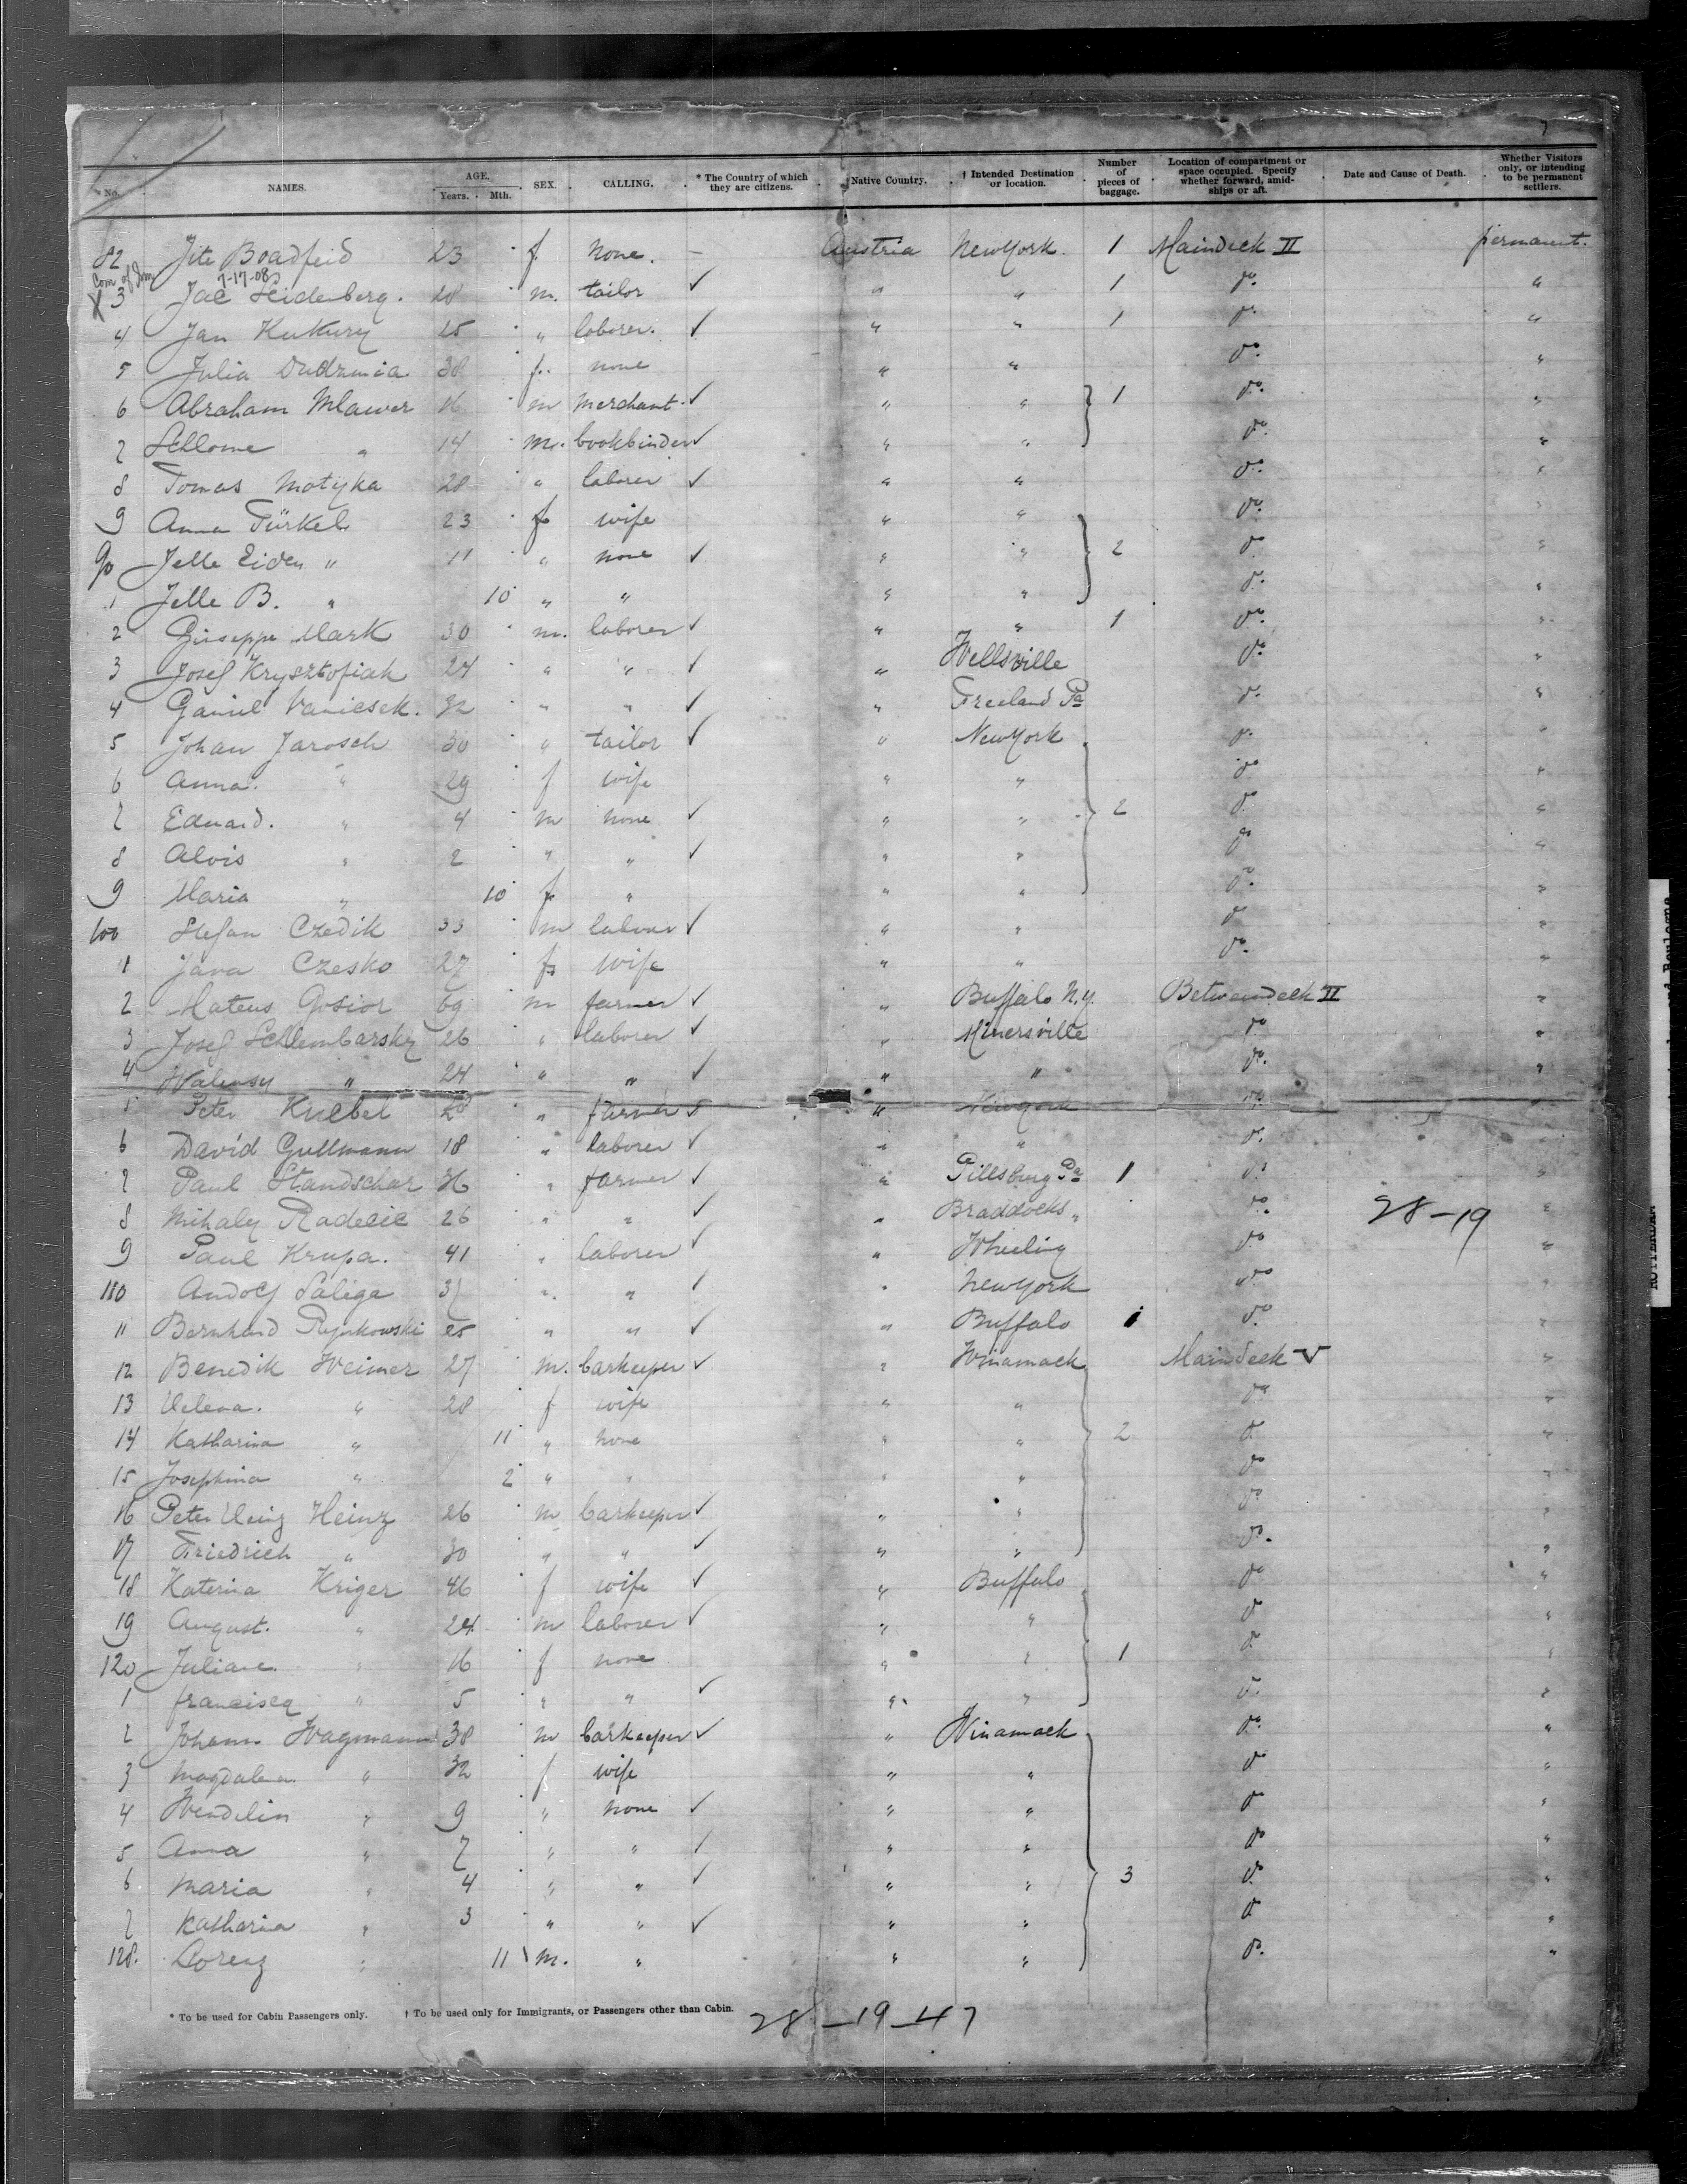 * No. NAMES. AGE. Years. Mth. SEX. CALLING. * The Country of which they are citizens. †Native Country. † Intended Destination or location. Number of pieces of baggage. Location of compartment or space occupied. Specify whether forward, amidships or aft. Date and Cause of Death. Whether Visitors only, or intending to be permanent settlers.
82 Jite Boadfeid 23 f. none. — Austria NewYork. 1 Maindeck II permanent.
Com of Im 7-17-08
X 3 Jac Seidenberg. 28 m. tailor ✓ " " 1 do. "
4 Jan Kukury 25 " laborer. ✓ " " 1 do. "
5 Julia Dudzinia 38 f. none " " do. "
6 Abraham Mlawer 16 m merchant. ✓ " " 1 do. "
7 Schlome " 14 m. bookbinder ✓ " " do. "
8 Tomas Motyka 28 " laborer ✓ " " do. "
9 Anna Türkel 23 f wife " " do. "
90 Jelle Eiden " 11 " none ✓ " " 2 do "
1 Jelle B. " 10 " " " " do. "
2 Giuseppe Mark 30 m. laborer ✓ " " 1 do. "
3 Josef Krysztofiak 24 " " ✓ " Wellsville do. "
4 Vanicsek. 32 " " ✓ " Freeland Pa do. "
5 Johan Jarosch 30 " tailor ✓ " NewYork do. "
6 Anna. " 29 f wife " " do "
7 Eduard. " 4 m none ✓ " " 2 do. "
8 Alois " 2 " " ✓ " " do "
9 Maria " 10 f " " " do. "
100 Stefan Czedik 33 m laborer ✓ " " do "
1 Jana Czesko 27 f wife " " do. "
2 Mateus Gosior 69 m farmer ✓ " Buffalo N.Y. Betweendeck II "
3 Josef Schlembarsky 26 " laborer ✓ " Minersville do "
4 Walensy " 24 " " ✓ " " do. "
5 Peter Knebel " farmer ✓ " Newyork do. "
6 David Gullmann 18 " laborer ✓ " " do. "
7 Paul Standschar 36 " farmer ✓ " Pillsburg Pa 1 do "
8 Mihaly Radecic 26 " " ✓ " Braddocks " do. 28-19 "
9 Paul Krupa. 41 " laborer ✓ " Wheeling do "
110 Andoly Saliga " " ✓ " NewYork do "
11 Bernhard 25 " " ✓ " Buffalo 1 do. "
12 Benedik Weimer 27 m. barkeeper ✓ " Winamack Maindeck V "
13 Helena. " 28 f wife " " do "
14 Katharina " 11 " none " " 2 do. "
15 Josephina " 2 " " " " do "
16 Peter Heinz Heinz 26 m barkeeper ✓ " " do "
17 Friedrich " 30 " " ✓ " " do. "
18 Katerina Kriger 46 f wife ✓ " Buffalo do "
19 August. " 24 m laborer ✓ " " do "
120 Juliane " 16 f none " " 1 do "
1 francisca " 5 " " ✓ " " do. "
2 Johann Wagmann 38 m barkeeper ✓ " Winamack do. "
3 Magdalena. " 32 f wife " " do "
4 Wendelin " 9 " none ✓ " " do "
5 Anna " 7 " " ✓ " " do "
6 Maria " 4 " " ✓ " " 3 do. "
7 Katharina " 3 " " ✓ " " do "
128. Lorenz " 11 m. " " " do. "
* To be used for Cabin Passengers only. † To be used only for Immigrants, or Passengers other than Cabin.
28-19-47